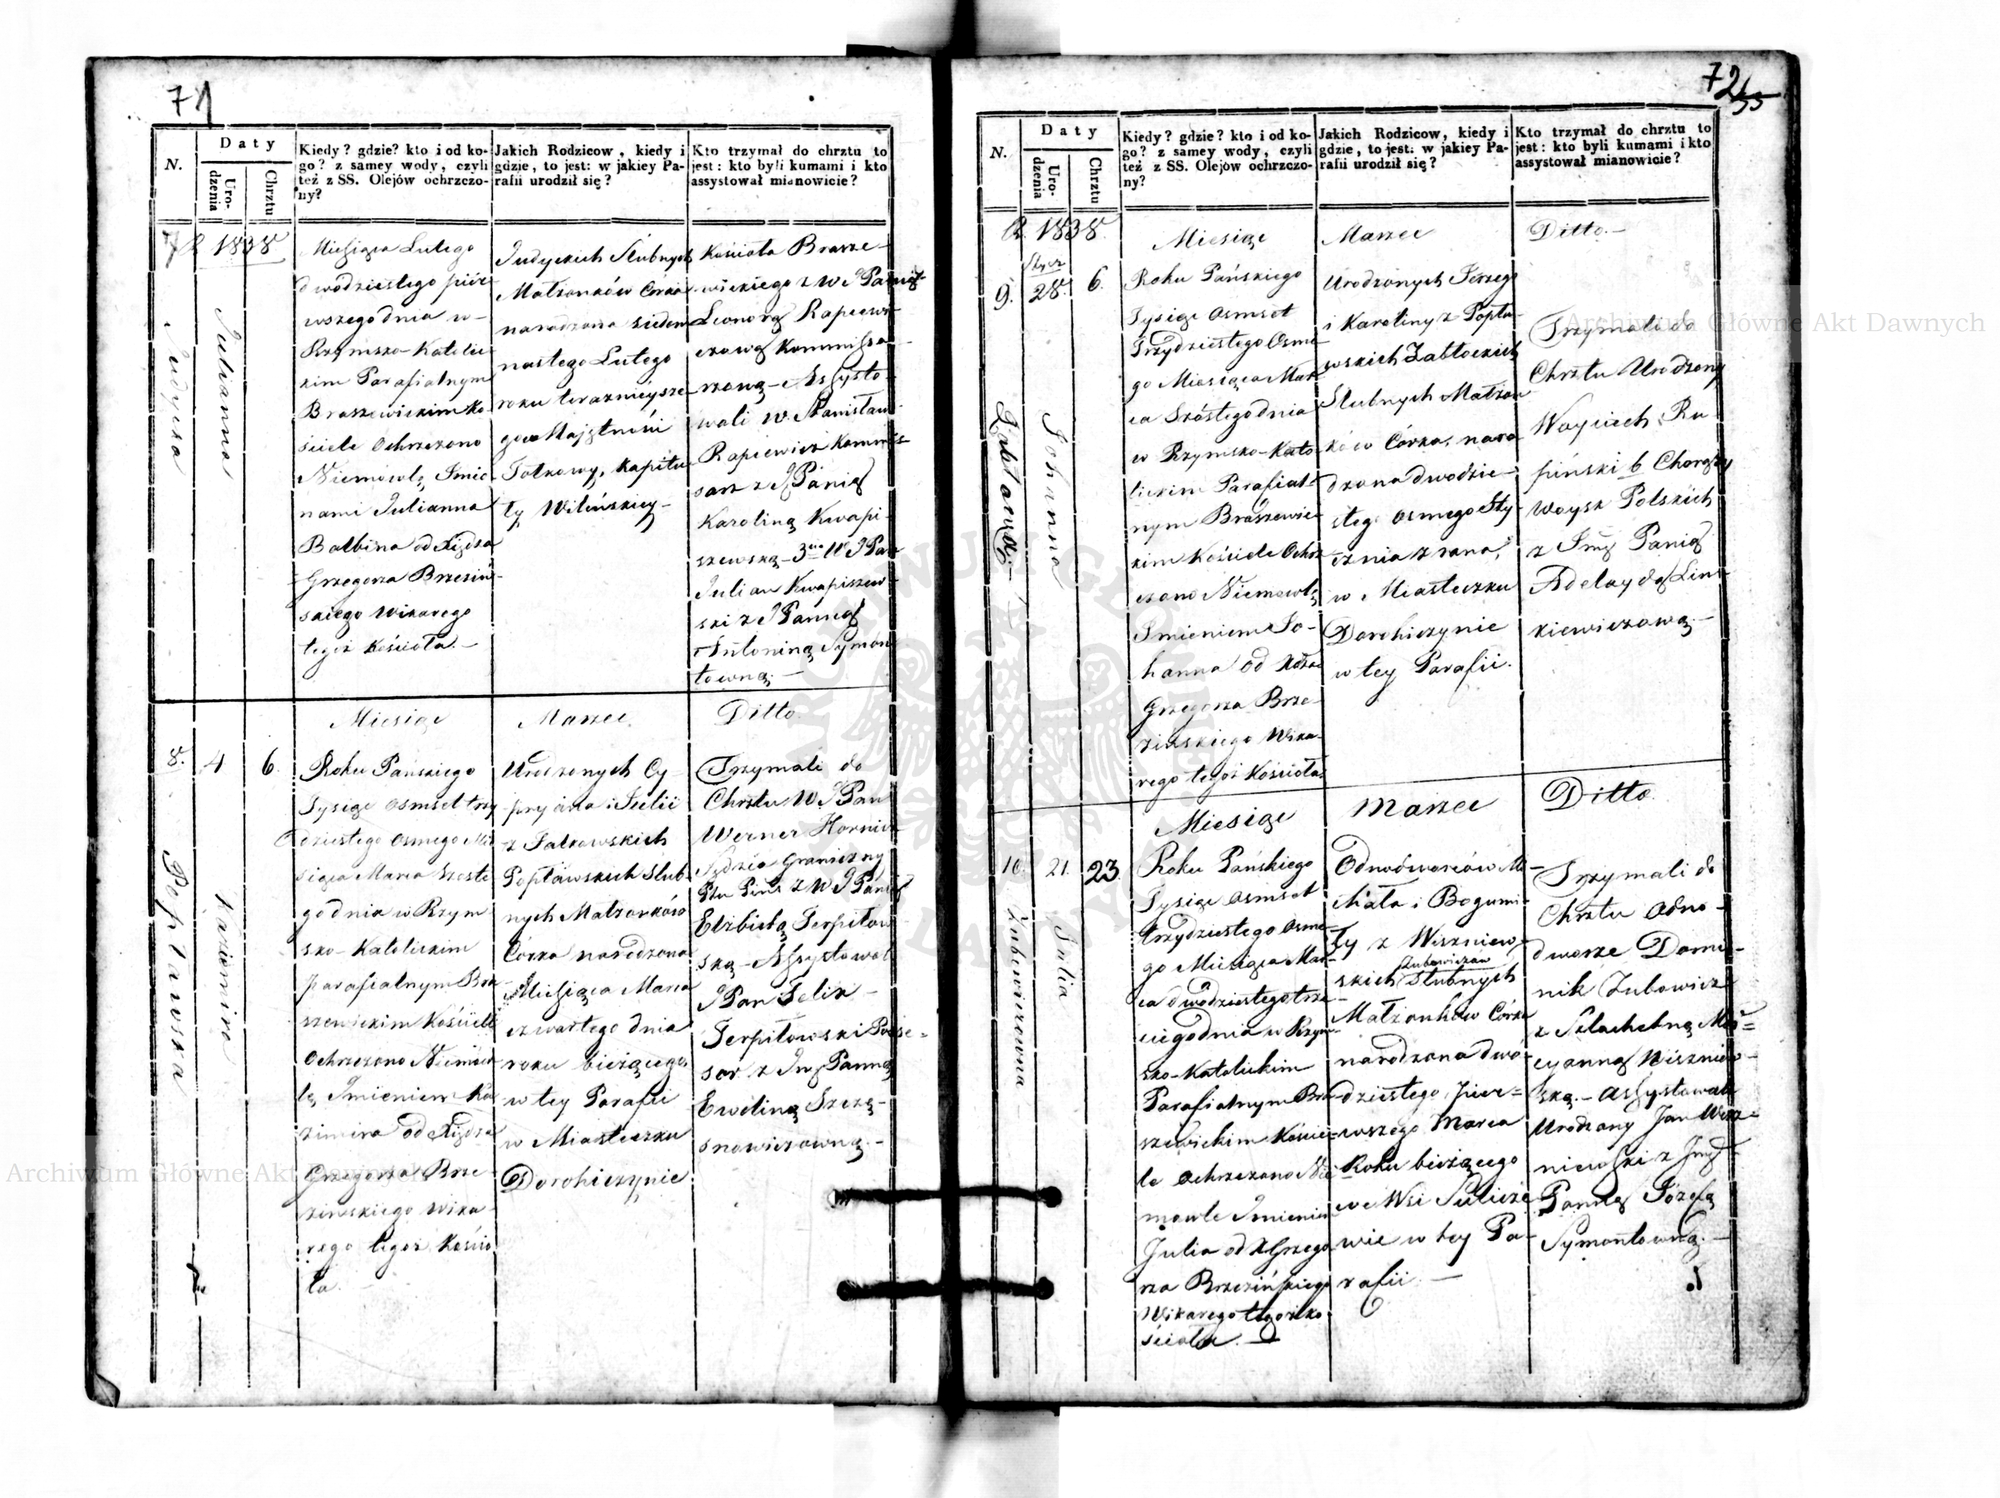 71
N.
Daty
Urodzenia
Chrztu
Kiedy? gdzie? kto i od ko-
go? z samey wody, czyli
też z SS. Olejów ochrzczo-
ny?
Jakich Rodzicow, kiedy i
gdzie, to jest: w jakiey Pa-
rafii urodził się?
Kto trzymał do chrztu to
jest: kto byli kumami i kto
assystował mianowicie?
7 R 1838
Julianna
Judycka
Miesiąca Lutego
dwodziestego pier
wszego dnia w
Rzymsko-Katolic
kim Parafialnym
Braszewickim Ko
ściele Ochrzczono
Niemowlę Imie
nami Julianna
Balbina od Xiędza
Grzegorza Brzeziń
skiego Wikarego
tegoż Kościoła.
Judyckich Slubnych
Małżonków Córka
narodzona siedem
nastego Lutego
roku teraznieysze
go w Majętności
Tolkowy, Kapitu
ły Wileńskiey
Kościoła Brasze-
wickiego z W J Panią
Leonorą Rapcewi
czową Kommissa
rzową - Assysto
wali W. Stanisław
Rapcewicz Kommis
sarz z J Panią
Karoliną Kwapi
szewską - 3cie W J Pan
Julian Kwapiszew
ski z J Panną
Antoniną Symon
towną.
Miesiąc
Marzec
Ditto.
8.
4
6.
Kazimira
Popławska
Roku Pańskiego
Tysiąc Osmset trzy
dziestego Osmego Mie
siąca Marca Szoste
go dnia w Rzym
sko-Katolickim
parafialnym Bra
szewickim Kościele
Ochrzczono Niemow
lę Imieniem Ka
zimira od Xiędza
Grzegorza Brze-
zińskiego Wika-
rego tegoż Kościo
ła.
Urodzonych Cy
pryana i Julii
z Jatkowskich
Popławskich Slub-
nych Małżonków
Córka narodzona
Miesiąca Marca
czwartego dnia
roku bieżącego,
w tey Parafii
w Miasteczku
Dorohiczynie.
Trzymali do
Chrztu W J Pan
Werner Hornicz
Sędzia Graniczny
Ptu Pins z W J Panią
Elżbietą Terpiłow
ską - Assystował
J Pan Felix
Terpiłowski Posse-
sor z Im Panną
Eweliną Szczą-
snowiczowną.
72
N.
Daty
Urodzenia
Chrztu
Kiedy? gdzie? kto i od ko-
go? z samey wody, czyli
też z SS. Olejów ochrzczo-
ny?
Jakich Rodzicow, kiedy i
gdzie, to jest: w jakiey Pa-
rafii urodził się?
Kto trzymał do chrztu to
jest: kto byli kumami i kto
assystował mianowicie?
R 1838.
Miesiąc
Marzec
Ditto.
9.
Stycz
28.
6.
Johanna
Roku Pańskiego
Tysiąc Osmset
Trzydziestego Osme
go Miesiąca Mar
ca Szóstego dnia
w Rzymsko-Kato
lickim Parafial
nym Braszewic
kim Kościele Ochrz
czono Niemowlę
Imieniem Jo-
hanna od Xdza
Grzegorza Brze-
zińskiego Wika-
rego tegoż Kościoła
Urodzonych Jerzego
i Karoliny z Popła
wskich Zabłockich
Slubnych Małżon
ków Córka, naro
dzona dwodzie-
stego Osmego Sty-
cznia z rana,
w Miasteczku
Dorohiczynie
w tey Parafii.
Trzymali do
Chrztu Urodzony
Woyciech Ru
piński b Chorąży
Woysk Polskich
z Im Panią
Adelaydą Lin-
kiewiczową.
Miesiąc
Marzec
Ditto.
10.
21.
23
Julia
Zubowiczowna
Roku Pańskiego
Tysiąc Osmset
trzydziestego Osme-
go Miesiąca Mar-
ca dwódziestego trze-
ciego dnia w Rzym-
sko-Katolickim
Parafialnym Bra-
szewickim Koście-
le Ochrzczono Nie
mowle Imieniem
Julia od X Grzego
rza Brzezińskiego
Wikarego tegoż Ko-
ścioła.
Odnodworców Mi-
chała i Bogumi-
ły z Wiszniew-
skich Zubowiczów Slubnych
Małżonków Córka
narodzona dwó-
dziestego pier=
wszego Marca
Roku bieżącego
we Wsi Sulicze
wie w tey Pa-
rafii.
Trzymali do
Chrztu Odno-
dworze Domi-
nik Zubowicz
z Szlachetną Ma=
ryanną Wiszniew-
ską. - Assystowali
Urodzony Jan Wisz-
niewski z Im
Panną Józefą
Symontowną.
Archiwum Główne Akt Dawnych
Archiwum Główne Akt Dawnych